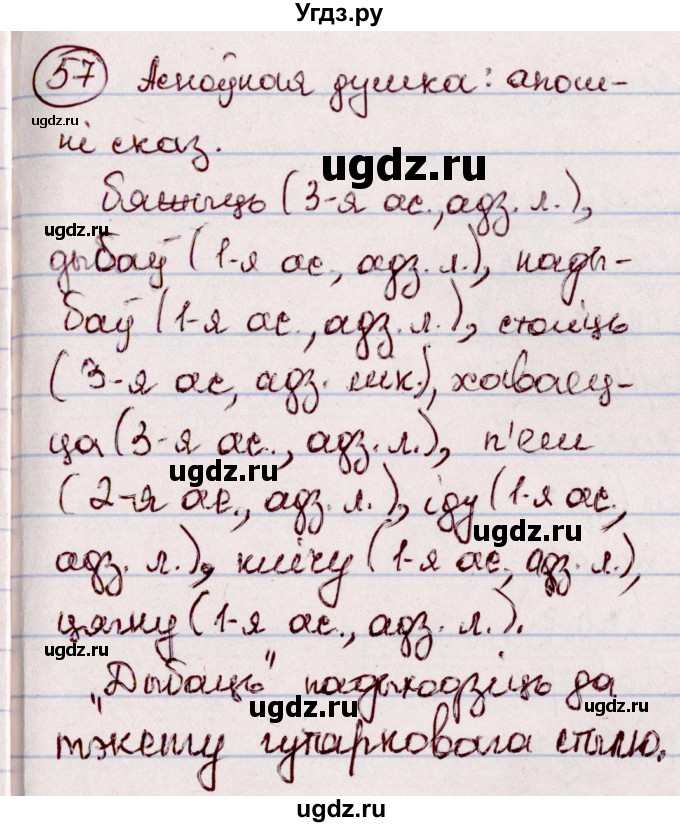 Угдз.ру
57 Асноўная думка: апош-
ugdz.ru
ні сказ.
ugdz.ru
(3-я ас., адз. л.),
ugdz.ru
дыбаў (1-я ас., адз. л.), нады-
баў (1-я ас., адз. л.), стаіць
(3-я ас, адз. лік.), хаваец-
ца (3-я ас., адз. л.), п'еш
ugdz.ru
(2-я ас., адз. л.), іду (1-я ас.,
ugdz.ru
адз. л.), клічу (1-я ас, адз. л.),
цягну (1-я ас., адз. л.).
ugdz.ru
"Дыбаць" падыходзіць да
ugdz.ru
тэксту гутарковага стылю.
ugdz.ru
ugdz.ru